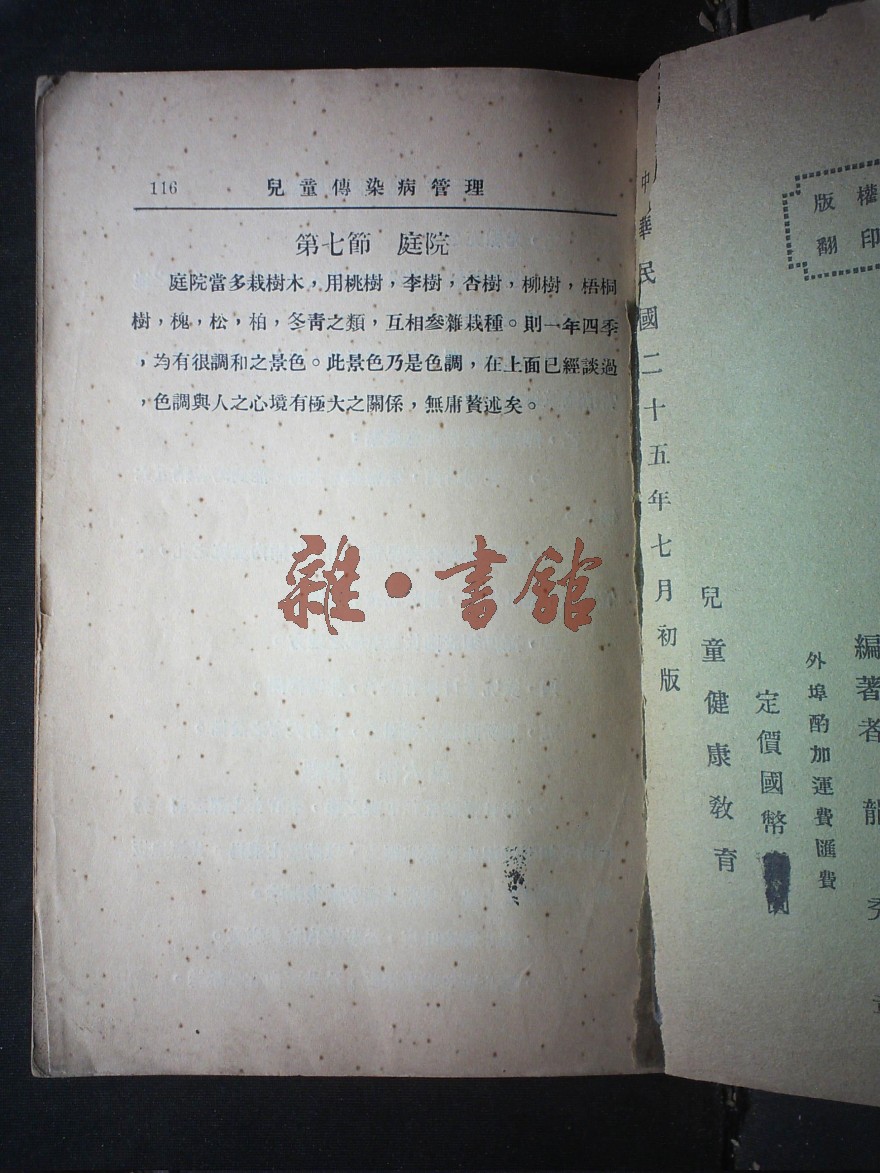 116 兒童傳染病管理
第七節 庭院
庭院當多栽樹木，用桃樹，李樹，杏樹，柳樹，梧桐
樹，槐，松，柏，冬靑之類，互相參雜栽種。則一年四季
，均有很調和之景色。此景色乃是色調，在上面已經談過
，色調與人之心境有極大之關係，無庸贅述矣。
雜・書館
版權
翻印
中華民國二十五年七月初版
編著者 龍
外埠酌加運費匯費
定價國幣
兒童健康敎育